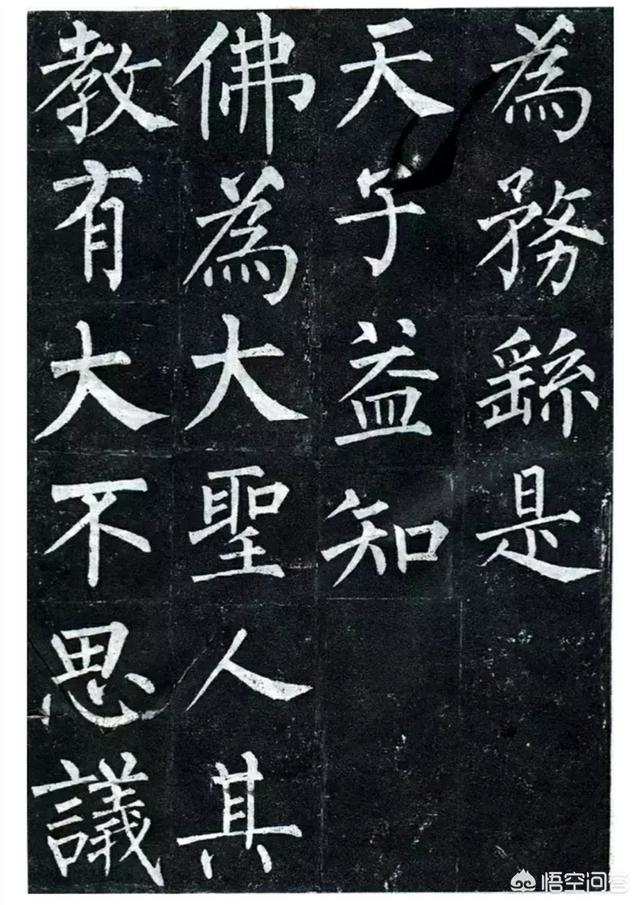 為務繇是
天子益知
佛為大聖人其
教有大不思議
悟空问答